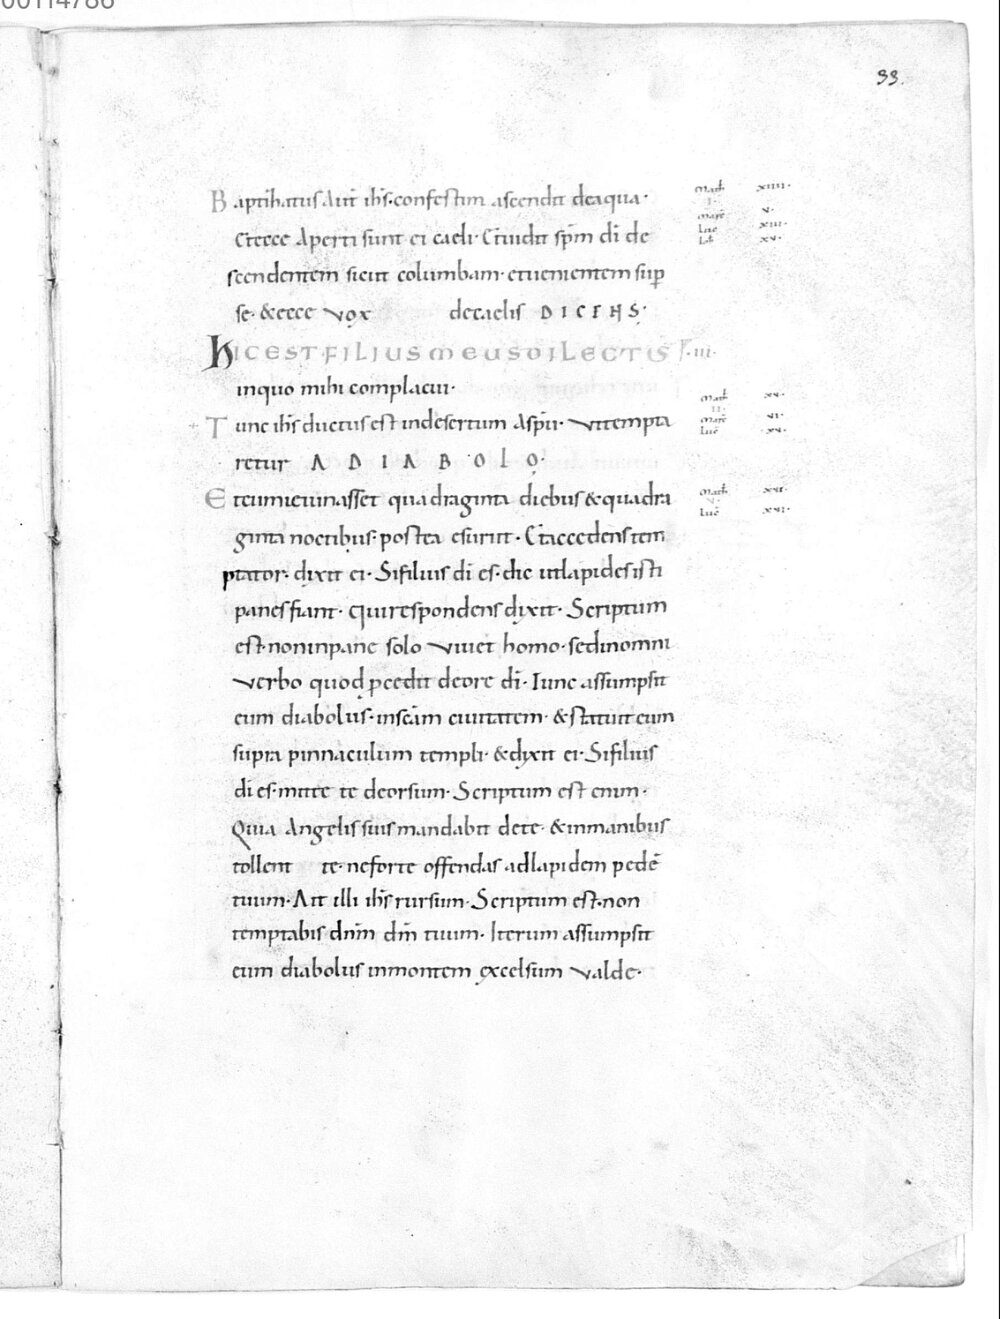 00114786
33.
Baptizatus autē ihs· confestim ascendit deaqua·
Etecce aperti sunt ei caeli· Etuidit spm di de
scendentem sicut columbam· etuenientem sup
se· &ecce vox decaelis DICENS·
HICESTFILIUSMEUSDILECTIS .III.
inquo mihi complacui·
Tunc ihs ductus est indesertum aspu· vttempta
retur A D I A B O L O·
Etcumieiunasset quadraginta diebus&quadra
ginta noctibus· postea esuriit· Etaccedenstem
ptator· dixit ei· Sifilius di es· dic utlapidesisti
panesfiant· quirespondens dixit· Scriptum
est· noninpane solo viuet homo· sedinomni
verbo quod pcedit deore di· Tunc assumpsit
eum diabolus· inscam ciuitatem· &statuit eum
supra pinnaculum templi· &dixit ei· Sifilius
di es· mitte te deorsum· Scriptum est enim·
Quia Angelis suis mandabit dete· &inmanibus
tollent te· neforte offendas adlapidem pedē
tuum· Ait illi ihs rursum· Scriptum est· non
temptabis dnm dm tuum· Iterum assumpsit
eum diabolus inmontem excelsum valde·
Math XIIII·
I·
Marc V·
Luc XIII·
Ioh XV·
Math XV·
II·
Marc VI·
Luc XV·
Math XVI·
V·
Luc XVI·